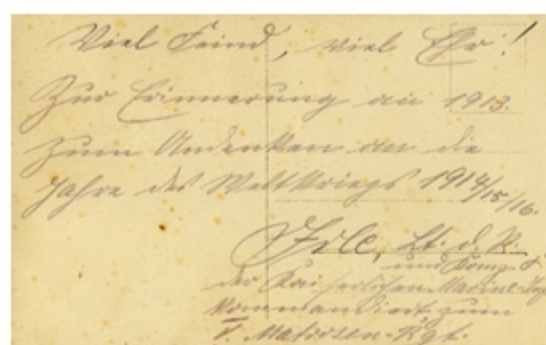 Viel Feind, viel Ehr!
Zur Erinnerung an 1913.
Zum Andenken an die
Jahre des Weltkriegs 1914/15/16.
Lt. d. R.
und Komp. F
der Kaiserlichen Marine
kommandiert zum
V. Matrosen-Rgt.